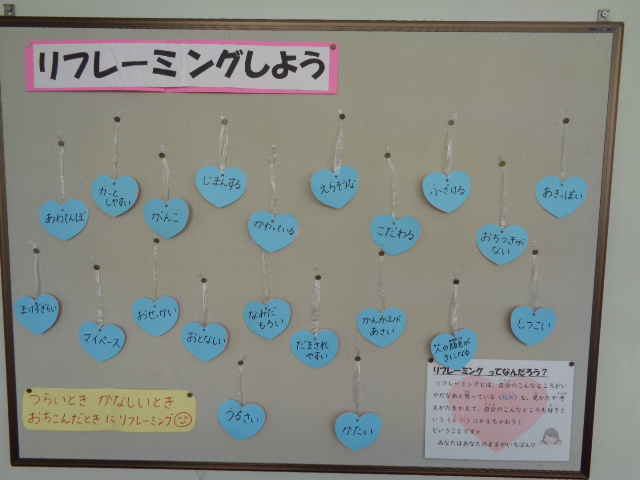 リフレーミングしよう
あわてんぼ
カッと
しやすい
がんこ
じまんする
かわっている
えらそうな
こだわる
ふざける
おちつきが
ない
あきっぽい
まけずぎらい
マイペース
おせっかい
おとなしい
なみだ
もろい
だまされ
やすい
かんがえが
あさい
人の顔色が
きになる
しつこい
うるさい
かたい
つらいとき かなしいとき
おちこんだとき にリフレーミング
リフレーミング ってなんだろう？
リフレーミングとは、自分のこんなところがい
やだなあと思っている（短所）も、見かたや考
えかたをかえて、自分のこんなところも好きと
いう（長所）にかえちゃおう！
ということです
あなたはあなたのままがいちばん!!